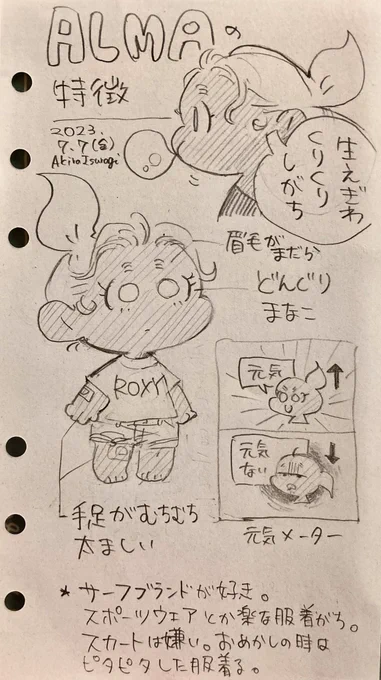 ALMAの
特徴
2023.
7.7(金)
Akiho Iswagi
生えぎわ
くりくり
しがち
眉毛が
まだら
どんぐり
まなこ
ROXY
元気
↑
元気
ない
↓
元気メーター
手足がむちむち
太ましい
* サーフブランドが好き。
スポーツウェアとか楽な服着がち。
スカートは嫌い。おめかしの時は
ピタピタした服着る。